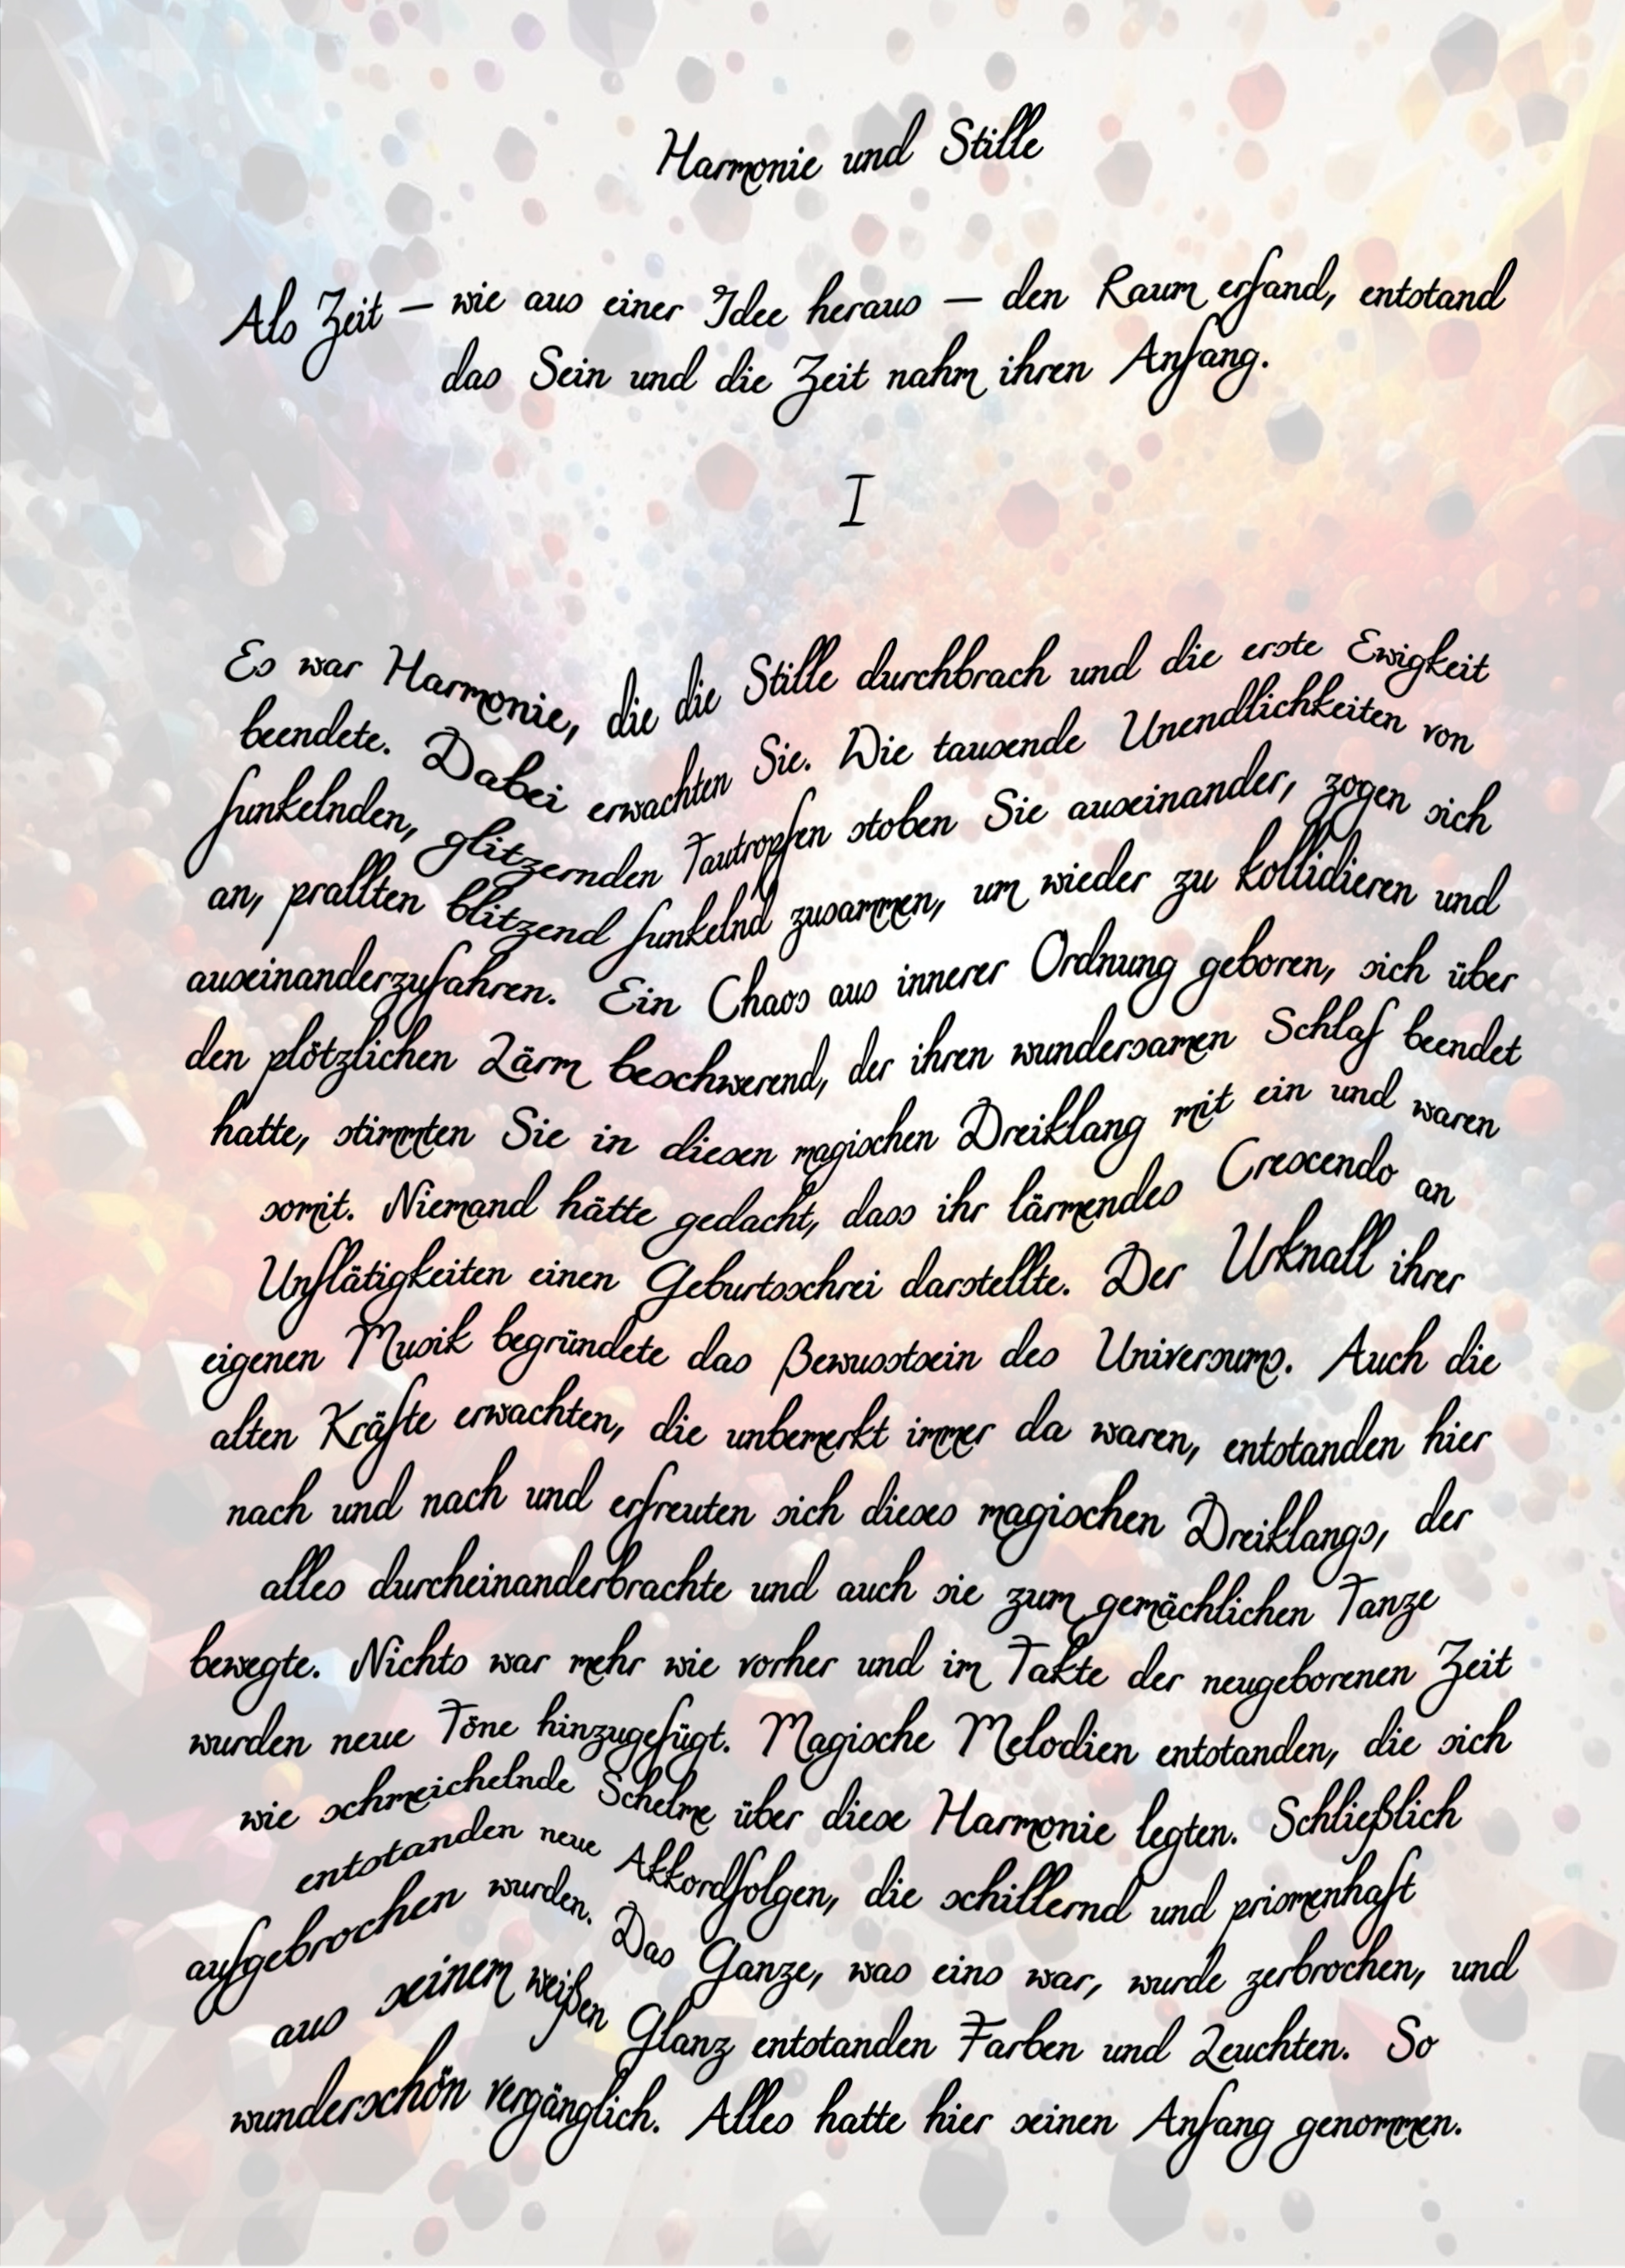 Harmonie und Stille
Als Zeit – wie aus einer Idee heraus – den Raum erfand, entstand
das Sein und die Zeit nahm ihren Anfang.
I
Es war Harmonie, die die Stille durchbrach und die erste Ewigkeit
beendete. Dabei erwachten Sie. Wie tausende Unendlichkeiten von
funkelnden, glitzernden Tautropfen stoben Sie auseinander, zogen sich
an, prallten blitzend funkelnd zusammen, um wieder zu kollidieren und
auseinanderzufahren. Ein Chaos aus innerer Ordnung geboren, sich über
den plötzlichen Lärm beschwerend, der ihren wundersamen Schlaf beendet
hatte, stimmten Sie in diesen magischen Dreiklang mit ein und waren
somit. Niemand hätte gedacht, dass ihr lärmendes Crescendo an
Unflätigkeiten einen Geburtsschrei darstellte. Der Urknall ihrer
eigenen Musik begründete das Bewusstsein des Universums. Auch die
alten Kräfte erwachten, die unbemerkt immer da waren, entstanden hier
nach und nach und erfreuten sich dieses magischen Dreiklangs, der
alles durcheinanderbrachte und auch sie zum gemächlichen Tanze
bewegte. Nichts war mehr wie vorher und im Takte der neugeborenen Zeit
wurden neue Töne hinzugefügt. Magische Melodien entstanden, die sich
wie schmeichelnde Schelme über diese Harmonie legten. Schließlich
entstanden neue Akkordfolgen, die schillernd und prismenhaft
aufgebrochen wurden. Das Ganze, was eins war, wurde zerbrochen, und
aus seinem weißen Glanz entstanden Farben und Leuchten. So
wunderschön vergänglich. Alles hatte hier seinen Anfang genommen.